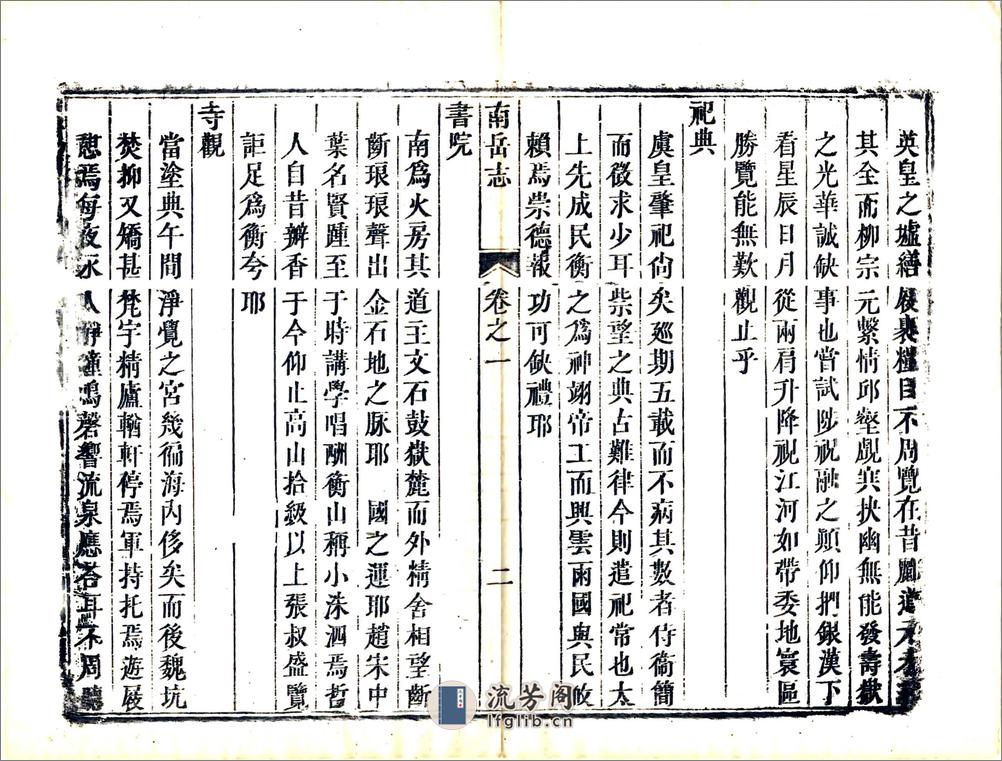 英皇之墟繕屐裹糧目不周覽在昔酈道元未
其全而柳宗元繫情邱壑覷寞抉幽無能發壽嶽
之光華誠缺事也嘗試陟祝融之顛仰捫銀漢下
看星辰日月從兩肩升降視江河如帶委地寰區
勝覽能無歎觀止乎
祀典
虞皇肇祀尙矣廵期五載而不病其數者侍衞簡
而徵求少耳柴望之典古難律今則遣祀常也太
上先成民衡之爲神翊帝工而興雲雨國與民攸
賴焉崇德報功可缺禮耶
南岳志 卷之一 二
書院
南爲火房其道主文石鼓嶽麓而外精舍相望斷
斷琅琅聲出金石地之脉耶 國之運耶趙宋中
葉名賢踵至于時講學唱酬衡山稱小洙泗焉哲
人自昔瓣香于今仰止高山拾級以上張叔盛覽
詎足爲衡夸耶
寺觀
當塗典午間淨覽之宮幾徧海內侈矣而後魏坑
焚抑又矯甚梵宇精廬輶軒停焉軍持托焉遊屐
憩焉每夜永人靜鐘鳴磬響流泉應答耳不周聽
流芳阁
lfglib.cn